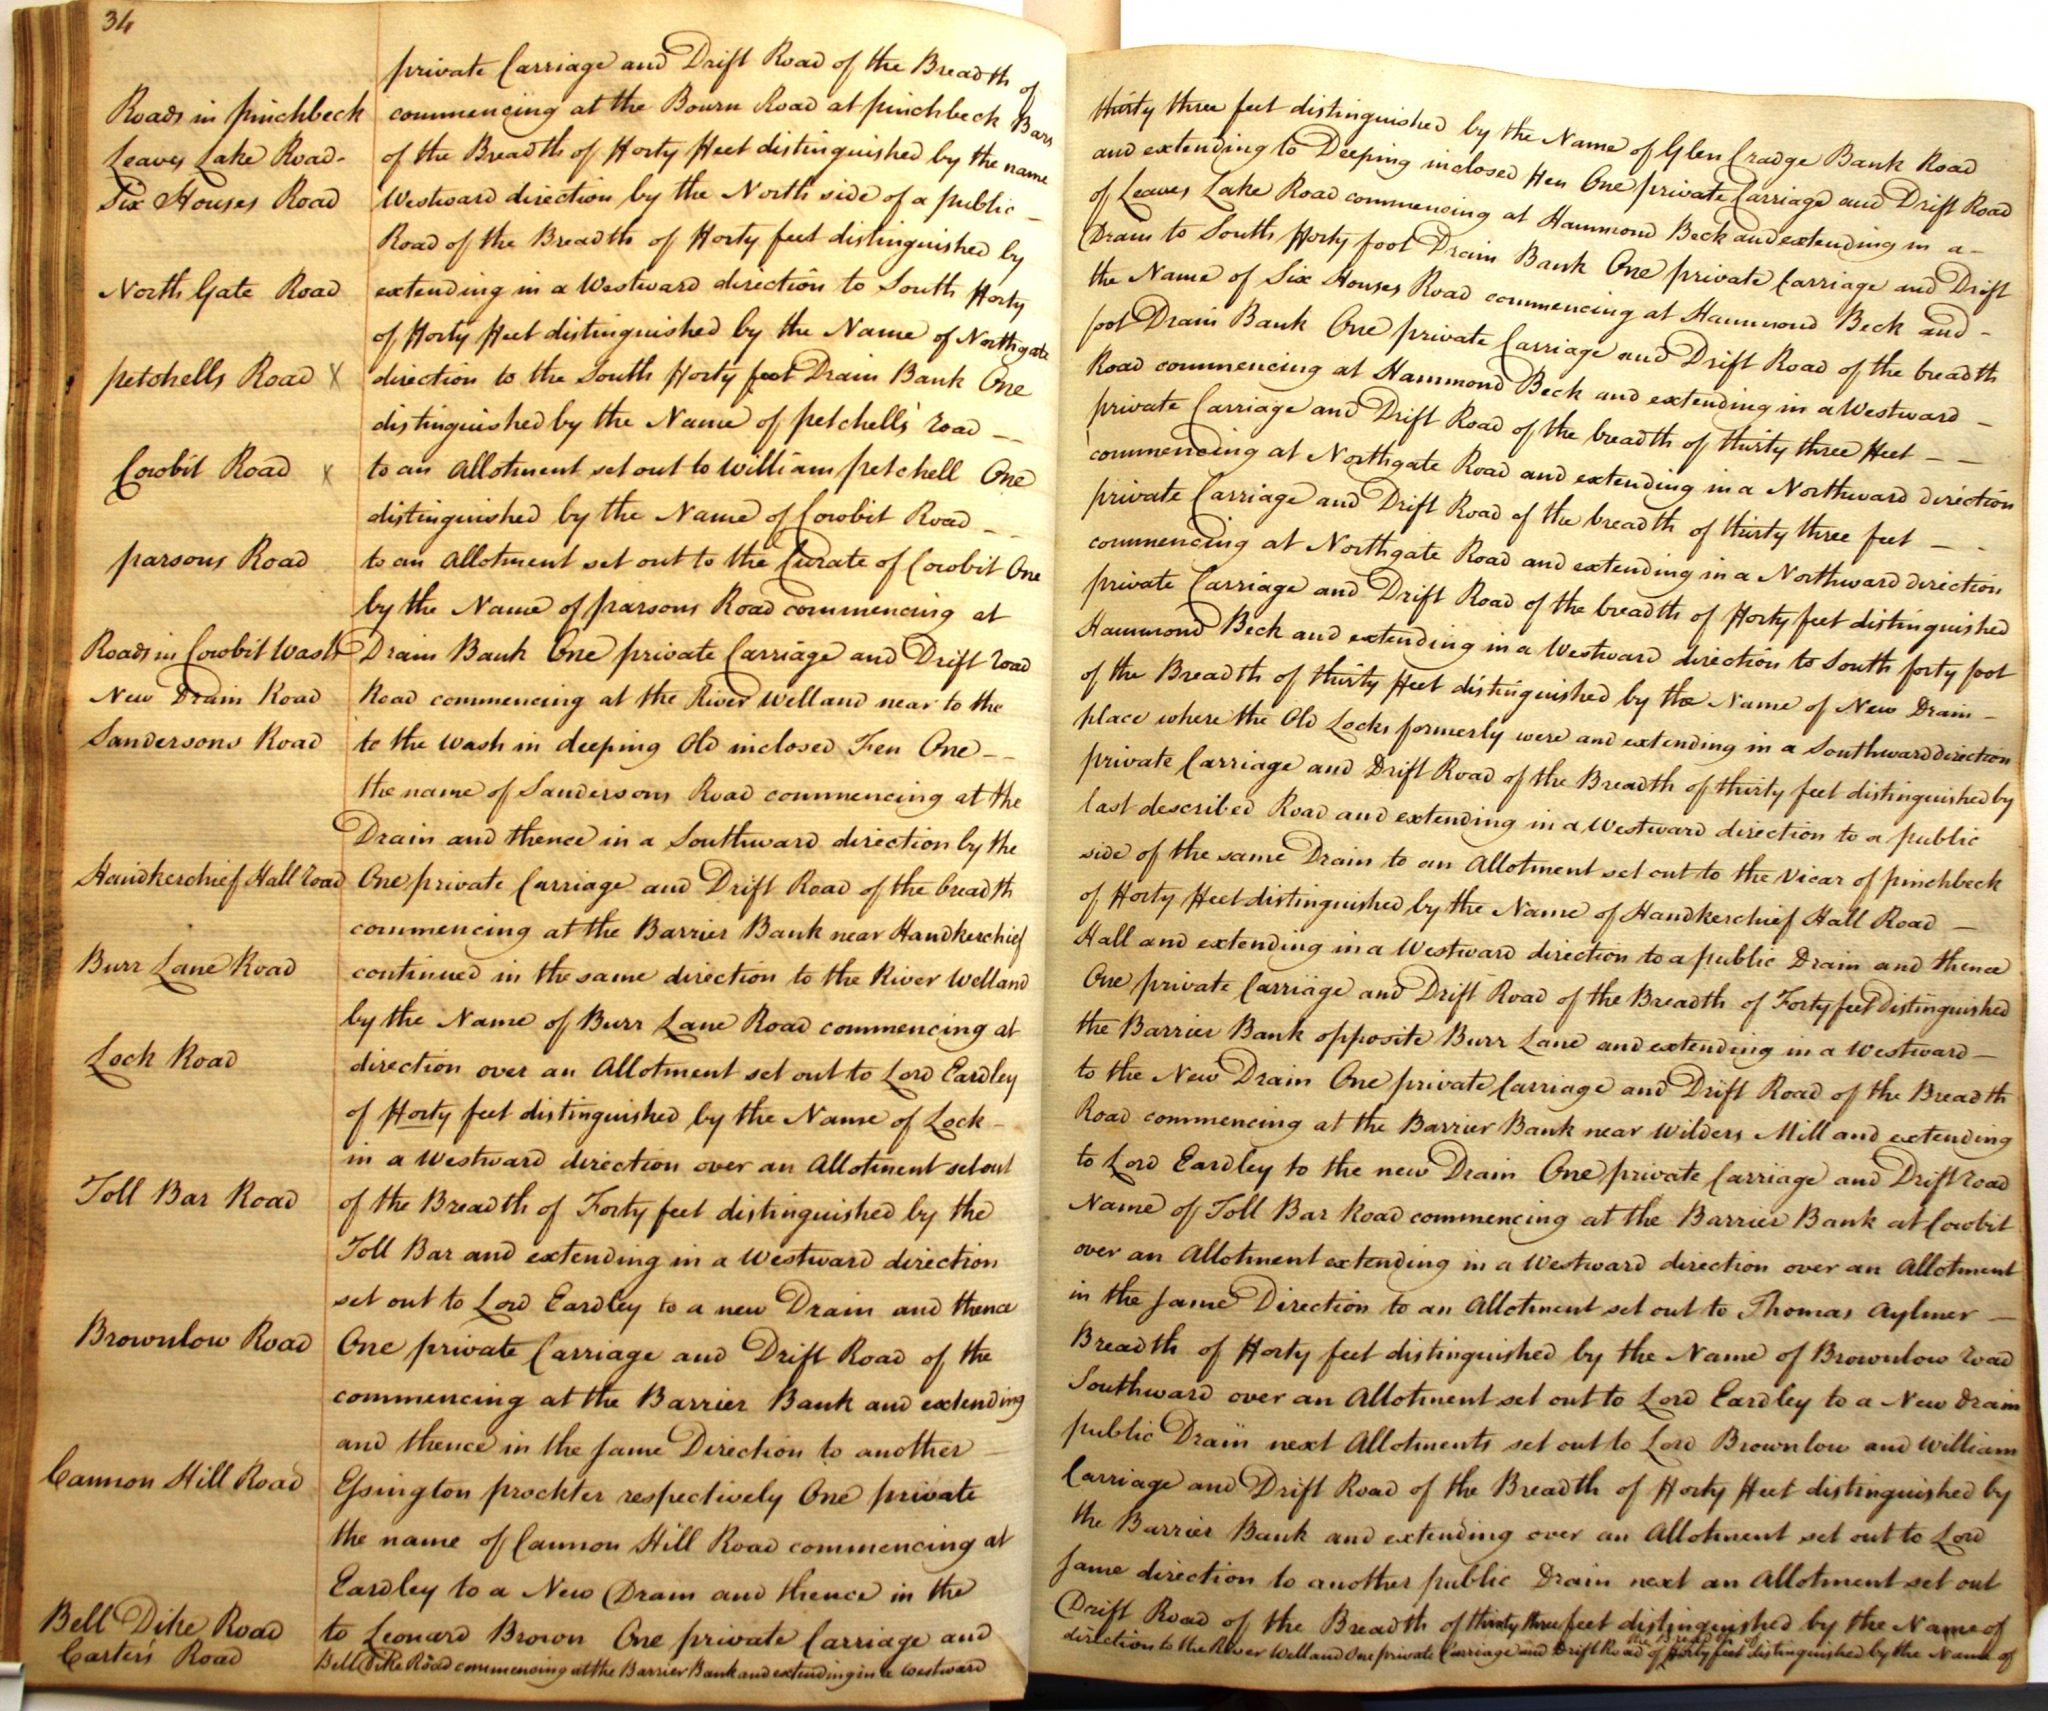 34
private Carriage and Drift Road of the Breadth of thirty three feet distinguished by the Name of Glen Cradge Bank Road
Roads in pinchbeck commencing at the Bourn Road at pinchbeck Bars and extending to Deeping inclosed Fen One private Carriage and Drift Road
Leaves Lake Road- of the Breadth of Forty Feet distinguished by the name of Leaves Lake Road commencing at Hammond Beck and extending in a-
Six Houses Road Westward direction by the North side of a public - Drain to South Forty foot Drain Bank One private Carriage and Drift
Road of the Breadth of Forty feet distinguished by the Name of Six Houses Road commencing at Hammond Beck and-
North Gate Road extending in a Westward direction to South Forty foot Drain Bank One private Carriage and Drift Road of the breadth
of Forty Feet distinguished by the Name of Northgate Road commencing at Hammond Beck and extending in a Westward -
petchells Road X direction to the South Forty foot Drain Bank One private Carriage and Drift Road of the breadth of thirty three Feet - -
distinguished by the Name of petchells' road - - commencing at Northgate Road and extending in a Northward direction
Cowbit Road X to an Allotment set out to William petchell One private Carriage and Drift Road of the breadth of thirty three feet - -
distinguished by the Name of Cowbit Road - - commencing at Northgate Road and extending in a Northward direction
parsons Road to an Allotment set out to the Curate of Cowbit One private Carriage and Drift Road of the breadth of Forty feet distinguished
by the Name of parsons Road commencing at Hammond Beck and extending in a Westward direction to South forty foot
Roads in Cowbit Wash Drain Bank One private Carriage and Drift road of the Breadth of thirty Feet distinguished by the Name of New Drain -
New Drain Road Road commencing at the River Welland near to the place where the Old Locks formerly were and extending in a Southward direction
Sandersons Road to the Wash in deeping Old inclosed Fen One - - private Carriage and Drift Road of the Breadth of thirty feet distinguished by
the name of Sandersons Road commencing at the last described Road and extending in a Westward direction to a public
Drain and thence in a Southward direction by the side of the same Drain to an Allotment set out to the Vicar of pinchbeck
Handkerchief Hall road One private Carriage and Drift Road of the breadth of Forty Feet distinguished by the Name of Handkerchief Hall Road -
commencing at the Barrier Bank near Handkerchief Hall and extending in a Westward direction to a public Drain and thence
Burr Lane Road continued in the same direction to the River Welland One private Carriage and Drift Road of the Breadth of Forty feet Distinguished
by the Name of Burr Lane Road commencing at the Barrier Bank opposite Burr Lane and extending in a Westward -
Lock Road direction over an Allotment set out to Lord Eardley to the New Drain One private Carriage and Drift Road of the Breadth
of Forty feet distinguished by the Name of Lock - Road commencing at the Barrier Bank near Wilders Mill and extending
in a Westward direction over an Allotment set out to Lord Eardley to the new Drain One private Carriage and Drift road
Toll Bar Road of the Breadth of Forty feet distinguished by the Name of Toll Bar Road commencing at the Barrier Bank at Cowbit
Toll Bar and extending in a Westward direction over an Allotment extending in a Westward direction over an Allotment
set out to Lord Eardley to a new Drain and thence in the same Direction to an Allotment set out to Thomas Aylmer -
Brownlow Road One private Carriage and Drift Road of the Breadth of Forty feet distinguished by the Name of Brownlow road
commencing at the Barrier Bank and extending Southward over an Allotment set out to Lord Eardley to a New Drain
and thence in the same Direction to another - public Drain next Allotments set out to Lord Brownlow and William
Cannon Hill Road Essington prockter respectively One private Carriage and Drift Road of the Breadth of Forty Feet distinguished by
the name of Cannon Hill Road commencing at the Barrier Bank and extending over an Allotment set out to Lord
Eardley to a New Drain and thence in the same direction to another public Drain next an Allotment set out
Bell Dike Road to Leonard Brown One private Carriage and Drift Road of the Breadth of thirty three feet distinguished by the Name of
Carter's Road Bell Dike Road commencing at the Barrier Bank and extending in a westward direction to the River Welland One private Carriage and Drift Road of the Breadth of Forty feet distinguished by the Name of